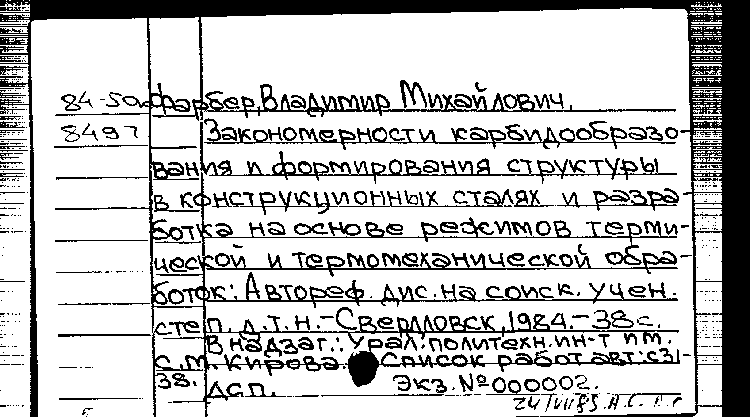 84-50 Фарбер, Владимир Михайлович.
8497 Закономерности карбидообразо-
вания и формирования структуры
в конструкционных сталях и разра-
ботка на основе режимов терми-
ческой и термомеханической обра-
боток: Автореф. дис. на соиск. учен.
степ. д.т.н. - Свердловск, 1984. - 38 с.
В надзаг.: Урал. политехн. ин-т им.
С.М. Кирова. Список работ авт.: с 31-
38.
ДСП. Экз. № 000002.